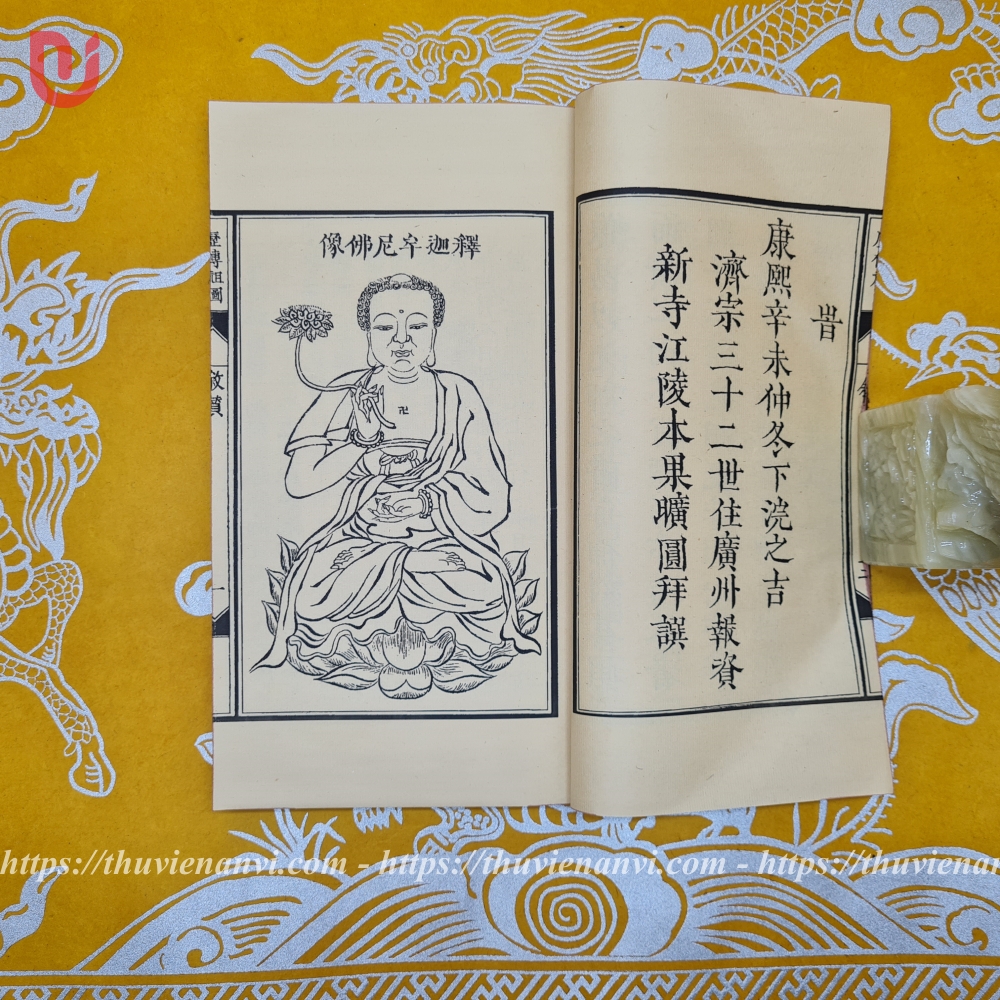 旹
康熙辛未仲冬下浣之吉
濟宗三十二世住廣州報資
新寺江陵本果曠圓拜譔
釋迦牟尼佛像
歷傳祖圖
https://thuvienanvi.com - https://thuvienanvi.com - https://thuvienanvi